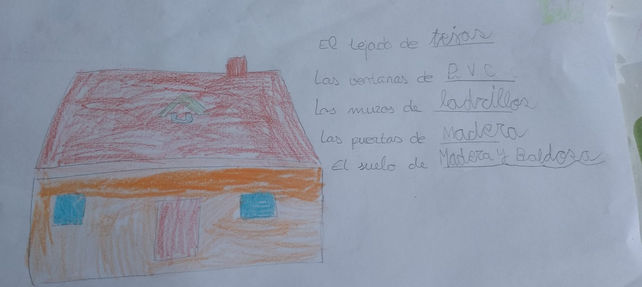 El tejado de tejas
Las ventanas de P.V.C.
Los muros de ladrillos
Las puertas de Madera
El suelo de Madera y Baldosa